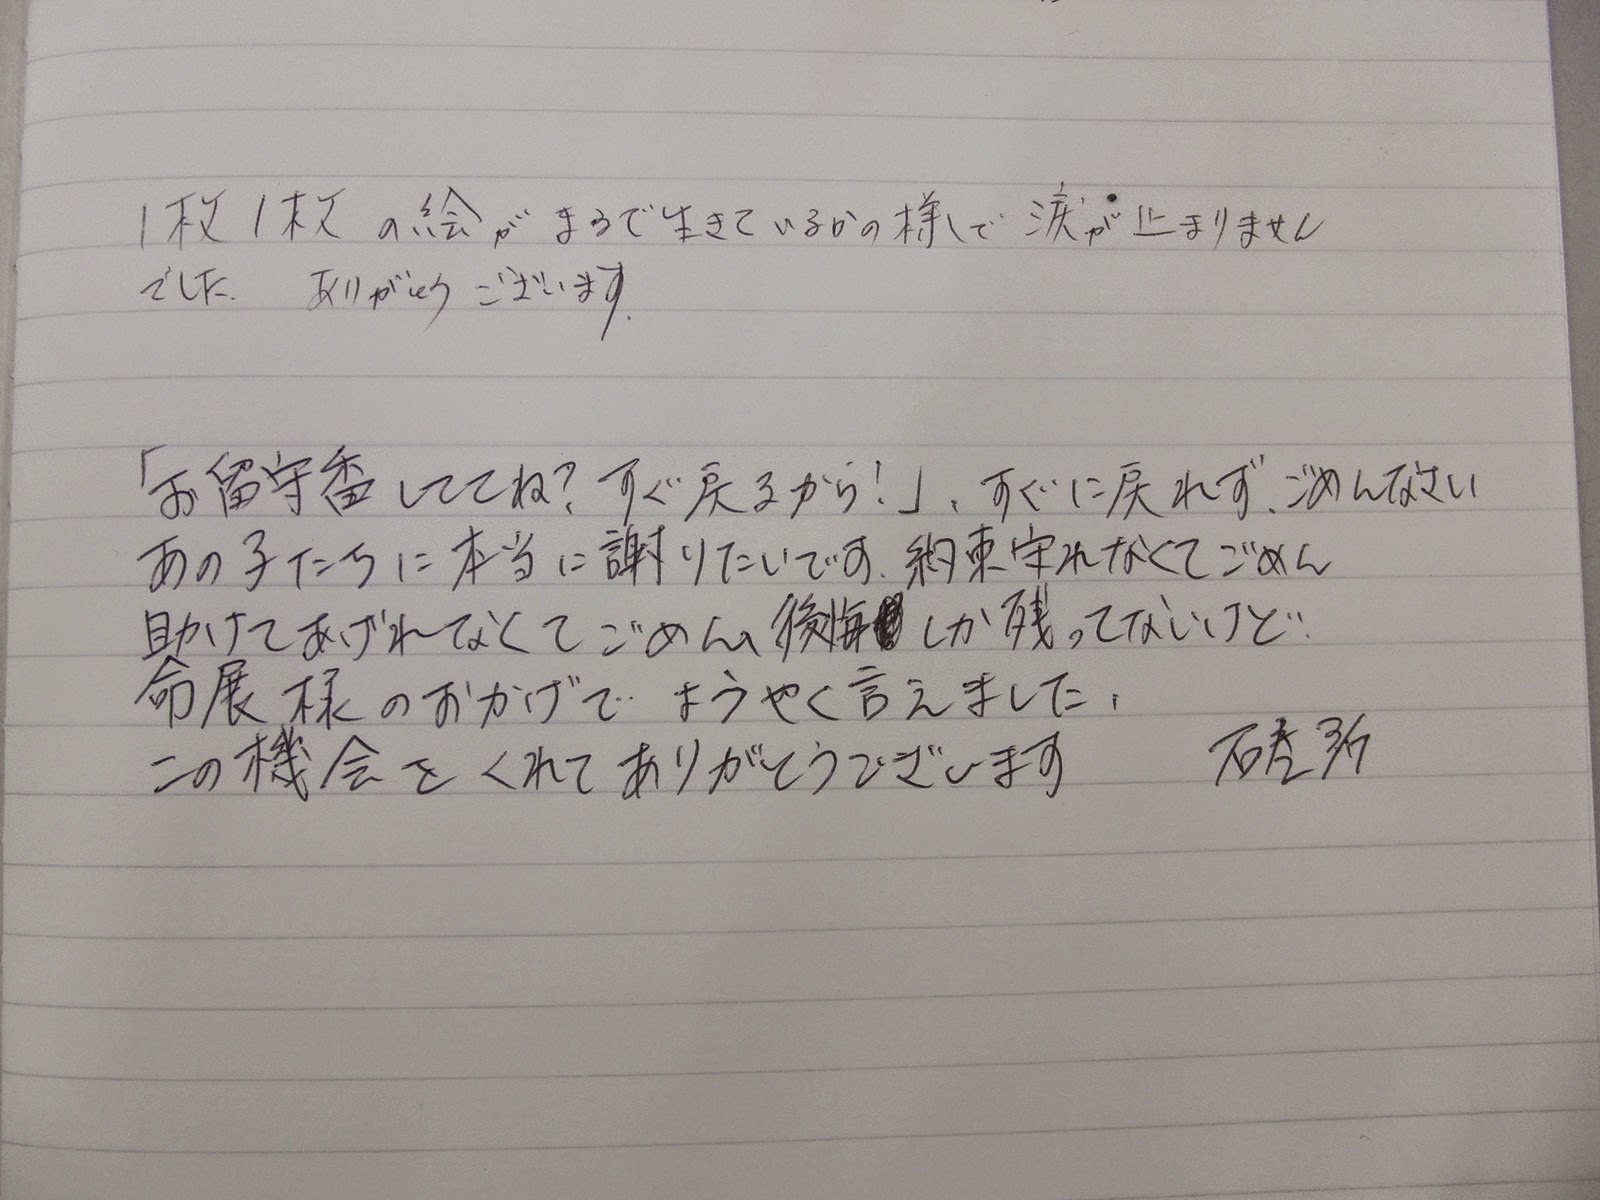 1枚1枚の絵がまるで生きているかの様しで涙が止まりません
でした. ありがとうございます.
「お留守番しててね?すぐ戻るから!」、すぐに戻れず、ごめんなさい
あの子たちに本当に謝りたいです. 約束守れなくてごめん
助けてあげれなくてごめん、後悔しか残ってないけど..
命展様のおかげで ようやく言えました.
この機会をくれてありがとうございます